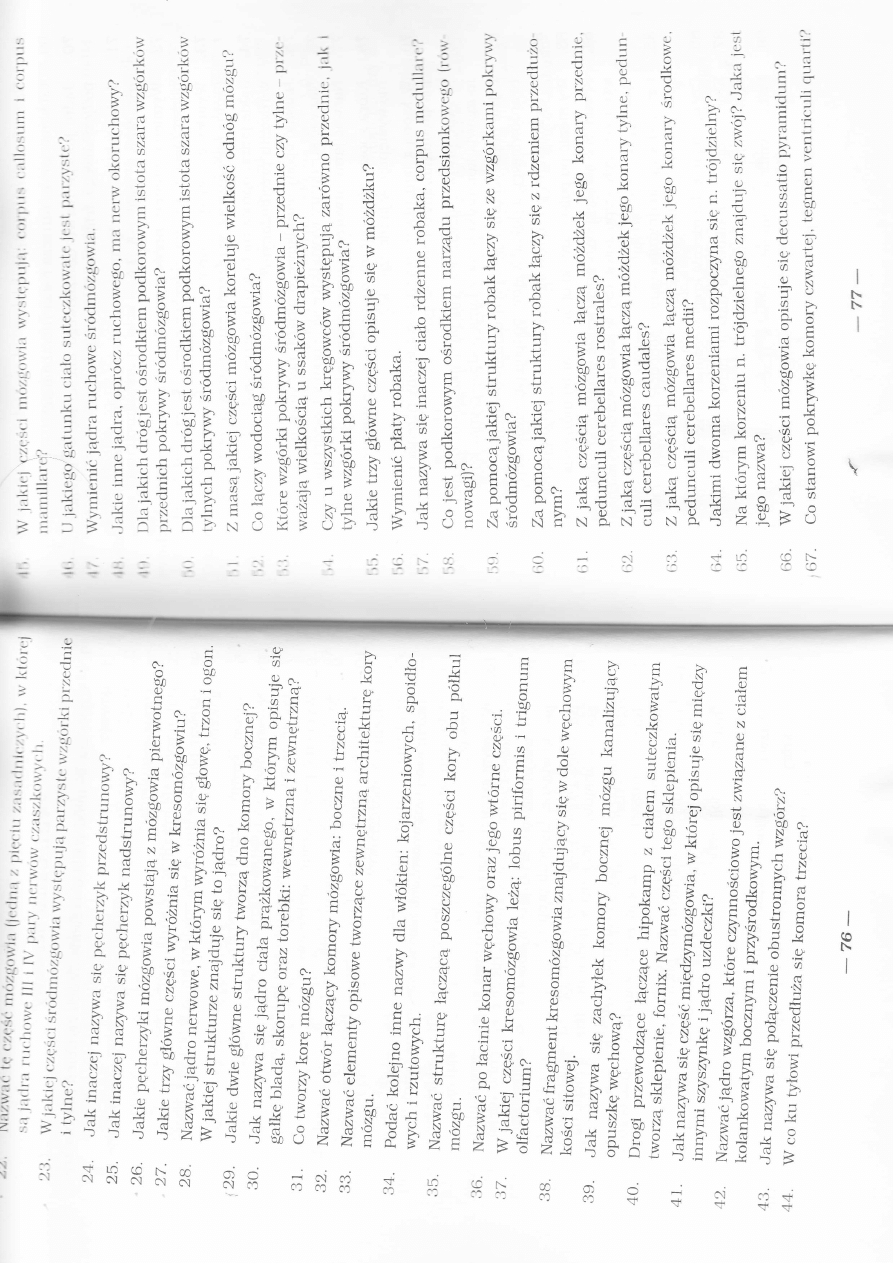 22. Nazwać tę część mózgowia (jedną z pięciu zasadniczych), w której
są jądra ruchowe III i IV pary nerwów czaszkowych.
23. W jakiej części śródmózgowia występują parzyste wzgórki przednie
i tylne?
24. Jak inaczej nazywa się pęcherzyk przedstrunowy?
25. Jak inaczej nazywa się pęcherzyk nadstrunowy?
26. Jakie pęcherzyki mózgowia powstają z mózgowia pierwotnego?
27. Jakie trzy główne części wyróżnia się w kresomózgowiu?
28. Nazwać jądro nerwowe, w którym wyróżnia się głowę, trzon i ogon.
W jakiej strukturze znajduje się to jądro?
29. Jakie dwie główne struktury tworzą dno komory bocznej?
30. Jak nazywa się jądro ciała prążkowanego, w którym opisuje się
gałkę bladą, skorupę oraz torebki: wewnętrzną i zewnętrzną?
31. Co tworzy korę mózgu?
32. Nazwać otwór łączący komory mózgowia: boczne i trzecią.
33. Nazwać elementy opisowe tworzące zewnętrzną architekturę kory
mózgu.
34. Podać kolejno inne nazwy dla włókien: kojarzeniowych, spoidło-
wych i rzutowych.
35. Nazwać strukturę łączącą poszczególne części kory obu półkul
mózgu.
36. Nazwać po łacinie konar węchowy oraz jego wtórne części.
37. W jakiej części kresomózgowia leżą: lobus piriformis i trigonum
olfactorium?
38. Nazwać fragment kresomózgowia znajdujący się w dole węchowym
kości sitowej.
39. Jak nazywa się zachyłek komory bocznej mózgu kanalizujący
opuszkę węchową?
40. Drogi przewodzące łączące hipokamp z ciałem suteczkowatym
tworzą sklepienie, fornix. Nazwać części tego sklepienia.
41. Jak nazywa się część międzymózgowia, w której opisuje się między
innymi szyszynkę i jądro uzdeczki?
42. Nazwać jądro wzgórza, które czynnościowo jest związane z ciałem
kolankowatym bocznym i przyśrodkowym.
43. Jak nazywa się połączenie obustronnych wzgórz?
44. W co ku tyłowi przedłuża się komora trzecia?
— 76 —
45. W jakiej części mózgowia występują: corpus callosum i corpus
mamillare?
46. U jakiego gatunku ciało suteczkowate jest parzyste?
47. Wymienić jądra ruchowe śródmózgowia.
48. Jakie inne jądra, oprócz ruchowego, ma nerw okoruchowy?
49. Dla jakich dróg jest ośrodkiem podkorowym istota szara wzgórków
przednich pokrywy śródmózgowia?
50. Dla jakich dróg jest ośrodkiem podkorowym istota szara wzgórków
tylnych pokrywy śródmózgowia?
51. Z masą jakiej części mózgowia koreluje wielkość odnóg mózgu?
52. Co łączy wodociąg śródmózgowia?
53. Które wzgórki pokrywy śródmózgowia – przednie czy tylne – prze-
ważają wielkością u ssaków drapieżnych?
54. Czy u wszystkich kręgowców występują zarówno przednie, jak i
tylne wzgórki pokrywy śródmózgowia?
55. Jakie trzy główne części opisuje się w móżdżku?
56. Wymienić płaty robaka.
57. Jak nazywa się inaczej ciało rdzenne robaka, corpus medullare?
58. Co jest podkorowym ośrodkiem narządu przedsionkowego (rów-
nowagi)?
59. Za pomocą jakiej struktury robak łączy się ze wzgórkami pokrywy
śródmózgowia?
60. Za pomocą jakiej struktury robak łączy się z rdzeniem przedłużo-
nym?
61. Z jaką częścią mózgowia łączą móżdżek jego konary przednie,
pedunculi cerebellares rostrales?
62. Z jaką częścią mózgowia łączą móżdżek jego konary tylne, pedun-
culi cerebellares caudales?
63. Z jaką częścią mózgowia łączą móżdżek jego konary środkowe,
pedunculi cerebellares medii?
64. Jakimi dwoma korzeniami rozpoczyna się n. trójdzielny?
65. Na którym korzeniu n. trójdzielnego znajduje się zwój? Jaka jest
jego nazwa?
66. W jakiej części mózgowia opisuje się decussatio pyramidum?
67. Co stanowi pokrywkę komory czwartej, tegmen ventriculi quarti?
— 77 —